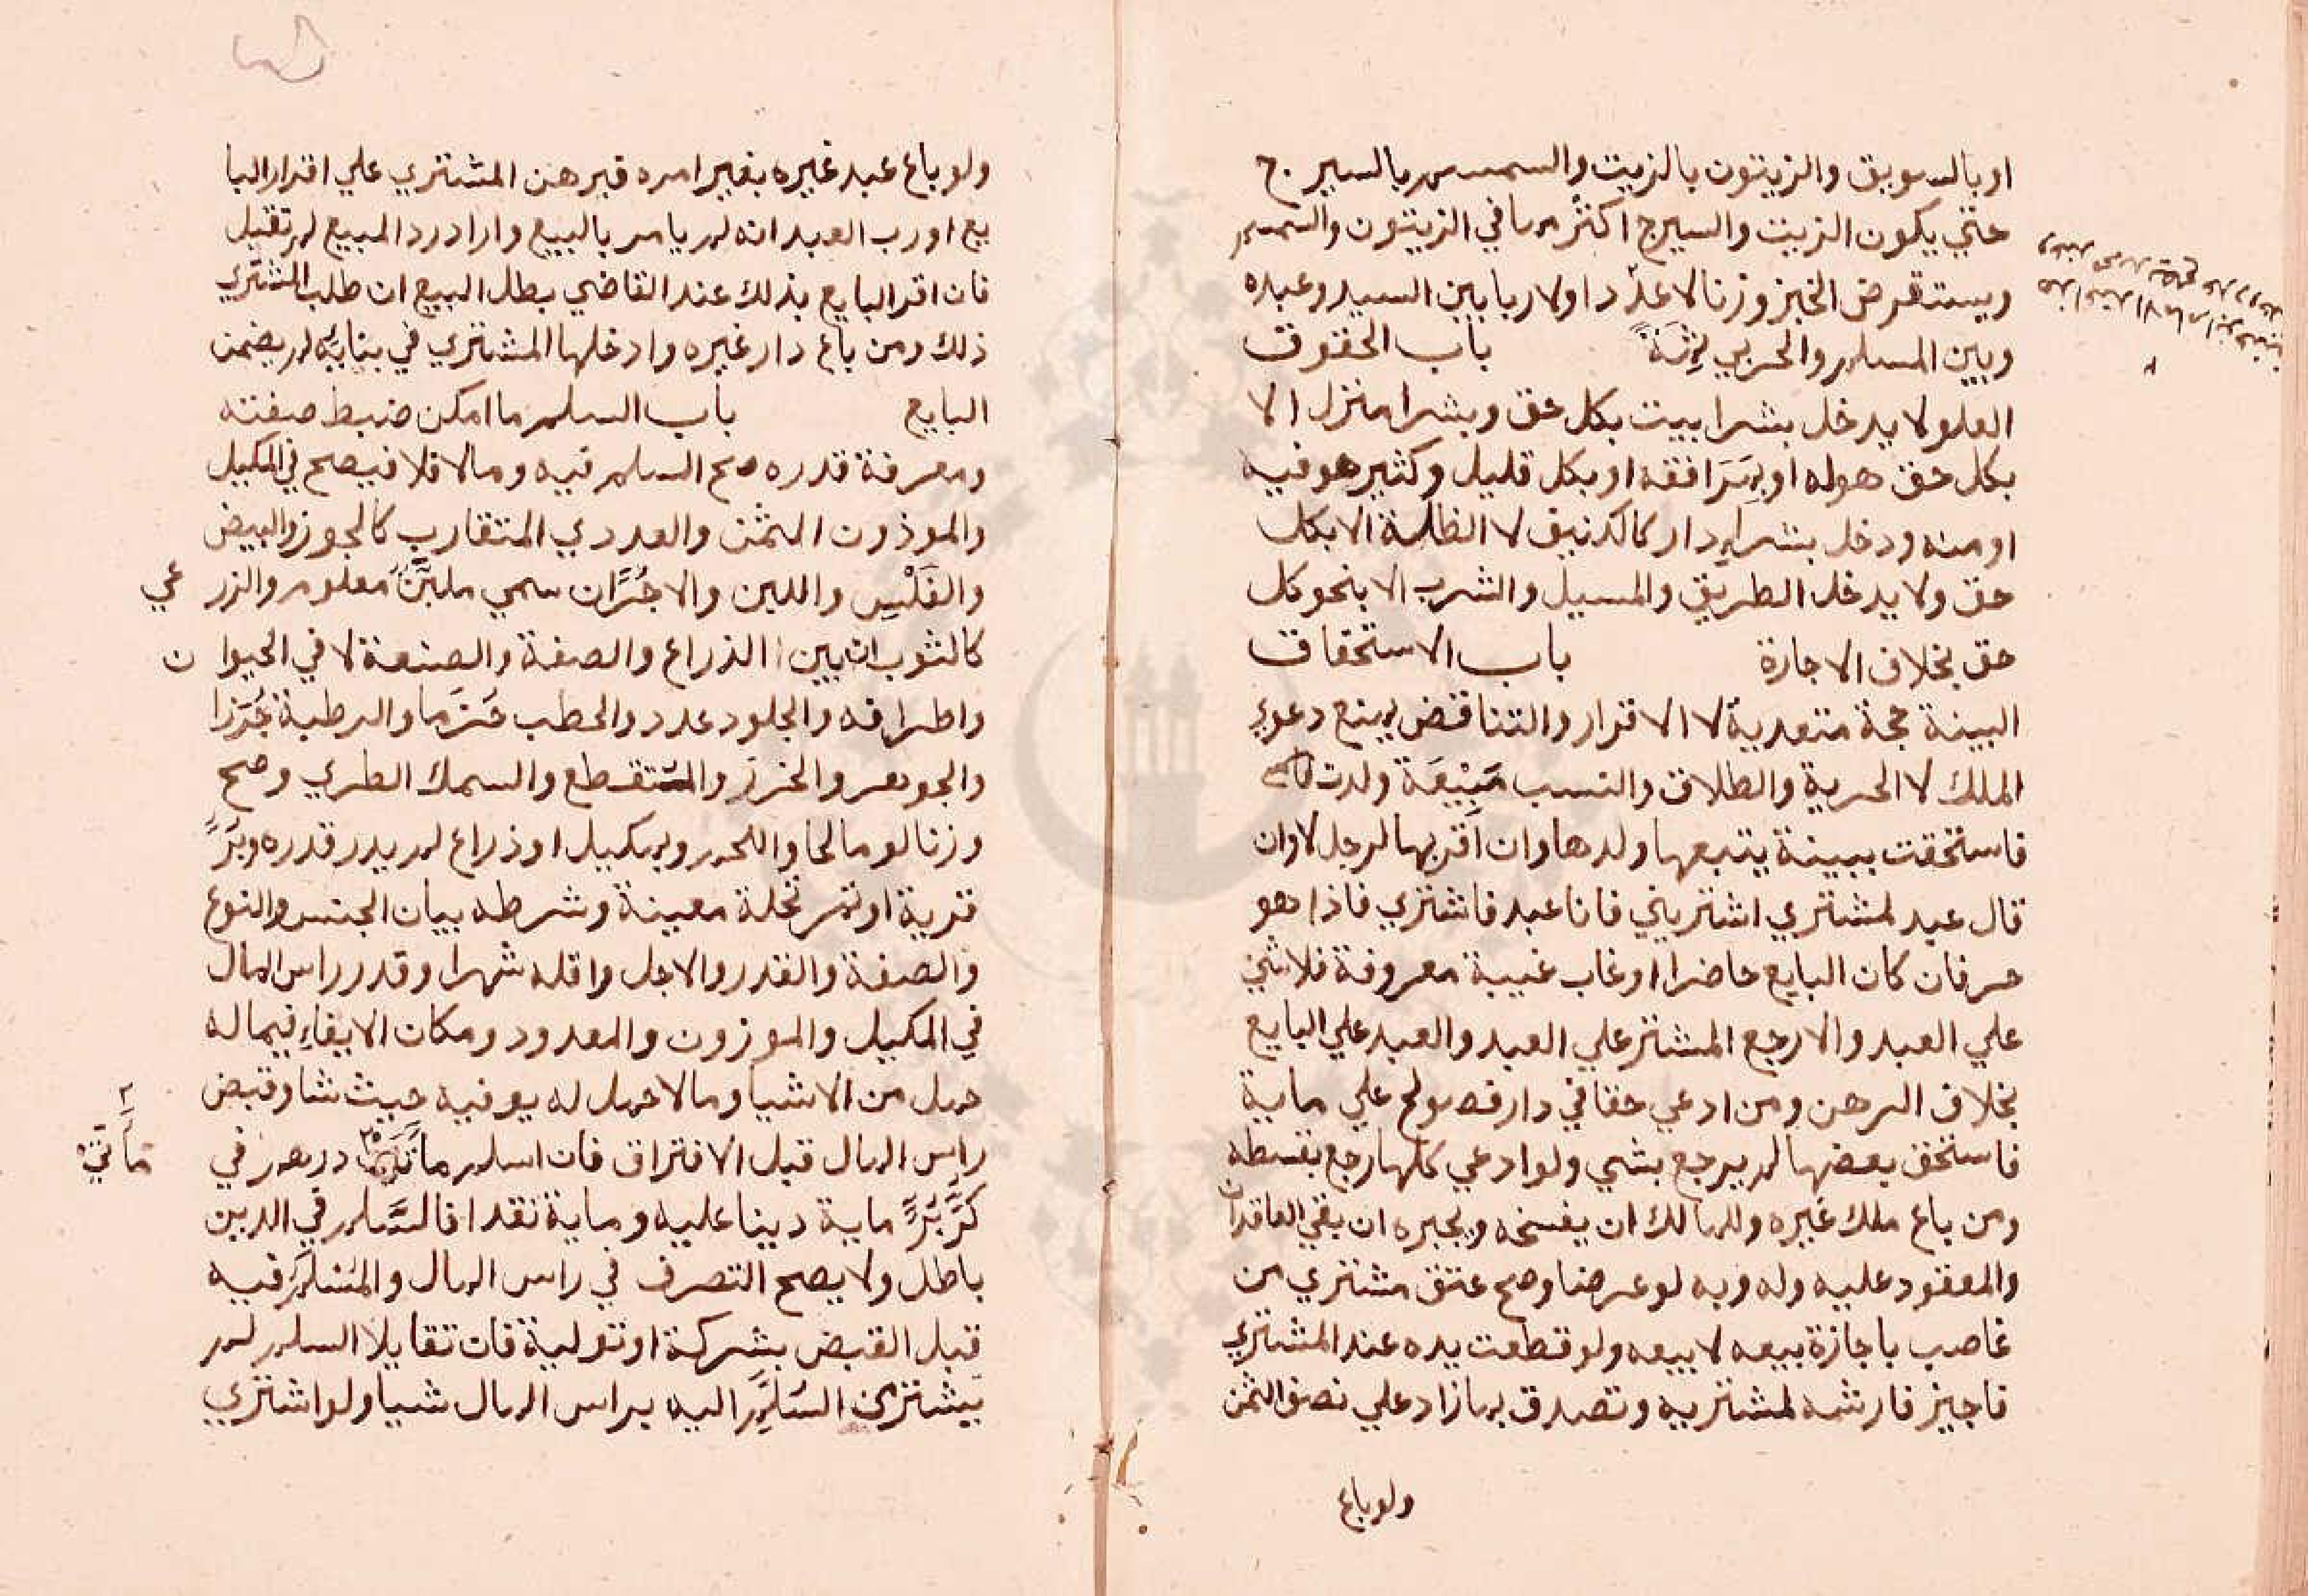 او بالسويق والزيتون بالزيت والسمسم بالسيرج
حتي يكون الزيت والسيرج اكثر مما في الزيتون والسمسم
ويستقرض الخبز وزنا لا عددا ولا ربا بين السيد وعبده
وبين المسلم والحربي ثمة باب الحقوق
العلو لا يدخل بشرا بيت بكل حق وبشرا منزل الا
بكل حق هو له او بمرافقه او بكل قليل وكثير هو فيه
او منه ودخل بشراء دار كالكنيف لا الظلة الا بكل
حق ولا يدخل الطريق والمسيل والشرب الا بنحو كل
حق بخلاف الاجارة باب الاستحقاق
البينة حجة متعدية لا الاقرار والتناقض يمنع دعوي
الملك لا الحرية والطلاق والنسب مبيعة ولدت
فاستحقت ببينة يتبعها ولدها وان اقر بها لرجل لا وان
قال عبد لمشتري اشتريني فانا عبد فاشتري فاذا هو
حر فان كان البايع حاضرا او غاب غيبة معروفة فلا شي
علي العبد والا رجع المشتر علي العبد والعبد علي البايع
بخلاف الرهن ومن ادعي حقا في دار فصولح علي ماية
فاستحق بعضها لم يرجع بشي ولو ادعي كلها رجع بقسطه
ومن باع ملك غيره وللمالك ان يفسخه ويجيره ان بقي العاقدان
والمعقود عليه وله وبه لو عرضا وصح عتق مشتري من
غاصب باجازة بيعه لا بيعه ولو قطعت يده عند المشتري
فاجيز فارشه لمشتريه وتصدق بما زاد علي نصف الثمن
ولو باع
ولو باع عبد غيره بغير امره فبرهن المشتري علي اقرار البا
يع او رب العبد انه لم يامر بالبيع واراد رد المبيع لم تقبل
فان اقر البايع بذلك عند القاضي بطل البيع ان طلب المشتري
ذلك ومن باع دار غيره وادخلها المشتري في بنايه لم يضمن
البايع باب السلم ما امكن ضبط صفته
ومعرفة قدره صح السلم فيه وما لا فلا فيصح في المكيل
والموذون المثمن والعددي المتقارب كالجوز والبيض
والفلس واللبن والاجر ان سمي ملبن معلوم والزر عي
كالثوب ان بين الذراع والصفة والصنعة لا في الحيوا ن
واطرافه والجلود عدد والحطب حزما والرطبة جرزا
والجوهر والخرز والمنقطع والسمك الطري وصح
وزنا لو مالحا واللحم وبمكيل او ذراع لم يدر قدره وبر
قرية او تمر نخلة معينة وشرطه بيان الجنس والنوع
والصفة والقدر والاجل واقله شهرا وقدر راس المال
في المكيل والموزون والمعدود ومكان الايفاء فيما له
حمل من الاشيا وما لا حمل له يوفيه حيث شا وقبض
راس المال قبل الافتراق فان اسلم مأتي درهم في
مأتي
كر بر ماية دينا عليه وماية نقدا فالسلم في الدين
باطل ولا يصح التصرف في راس المال والمسلم فيه
قبل القبض بشركة او تولية فان تقايلا السلم لم
يشتري المسلم اليه براس المال شيا ولو اشتري